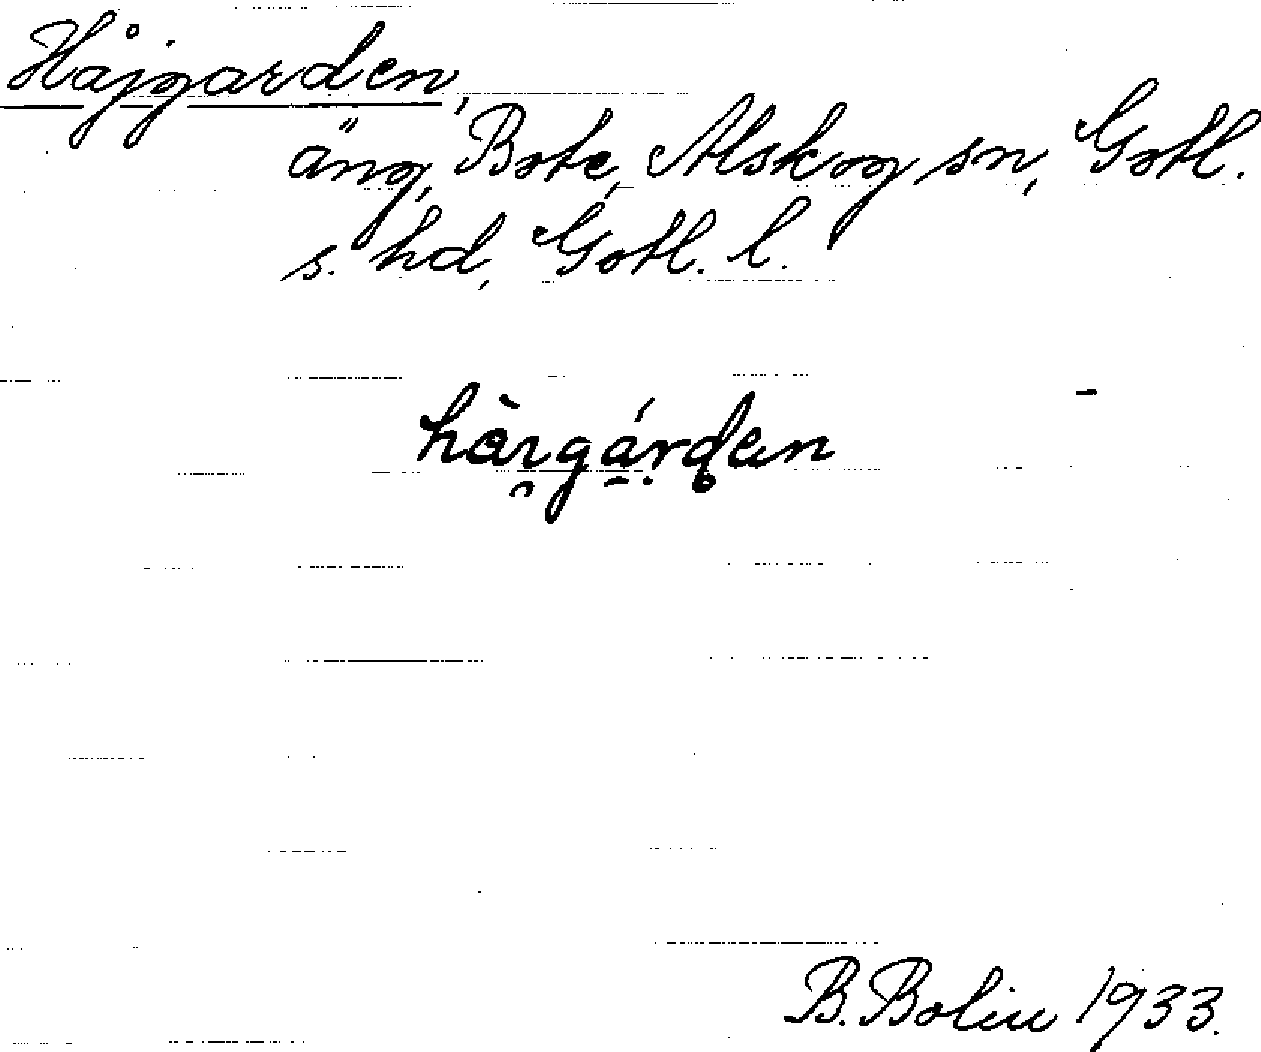 Håjgarden,
äng, Bote, Alskog sn, Gotl.
s. hd, Gotl. l.
B. Bolin 1933.